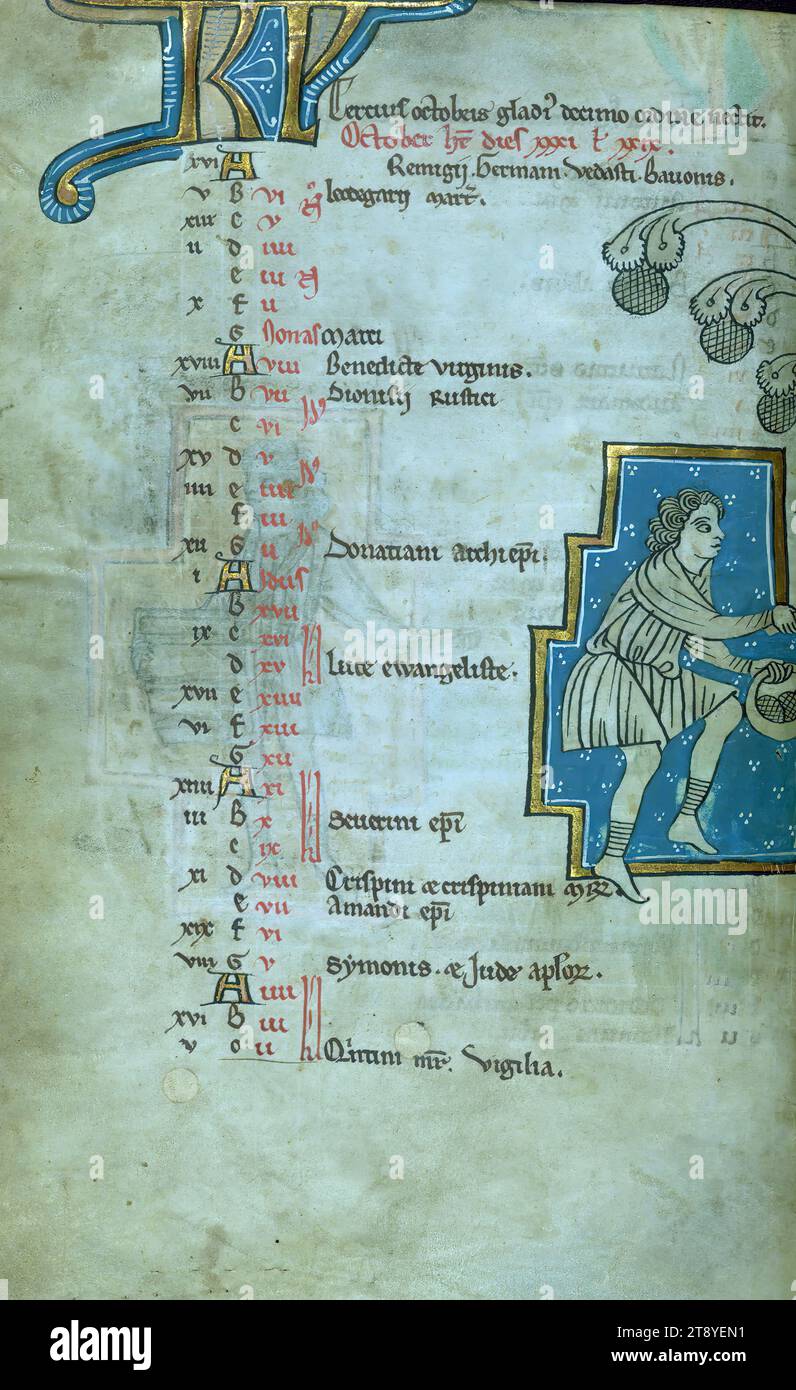 KL Tercius octobris gladi' decimo ordine nectit.
October ht dies xxxi l' xxix.
xvi A Remigij. Germani. Vedasti. Bavonis.
v B vi No leodegarij mart'.
xiii c v
ii d iiii
e iii N'
x f ii
G Nonas Marci
xviii A viii Benedicte virginis.
vii B vii Dionisij Rustici
c vi Id'
xv d v
iiii e iiii Id'
f iii
xii G ii Id' Donatiani archiepi.
i A Idus
B xvii
ix c xvi
d xv kl Luce ewangeliste.
xvii e xiiii
vi f xiii
G xii
xiiii A xi
iii B x Severini epi
c ix kl
xi d viii Crispini & crispiniani mr.
e vii Amandi epi
xix f vi
viii G v Symonis. & Jude aplor.
A iiii
xvi B iii
v c ii kl Qintini mr. Vigilia.
alamy
Image ID: 2T8YEN1
www.alamy.com